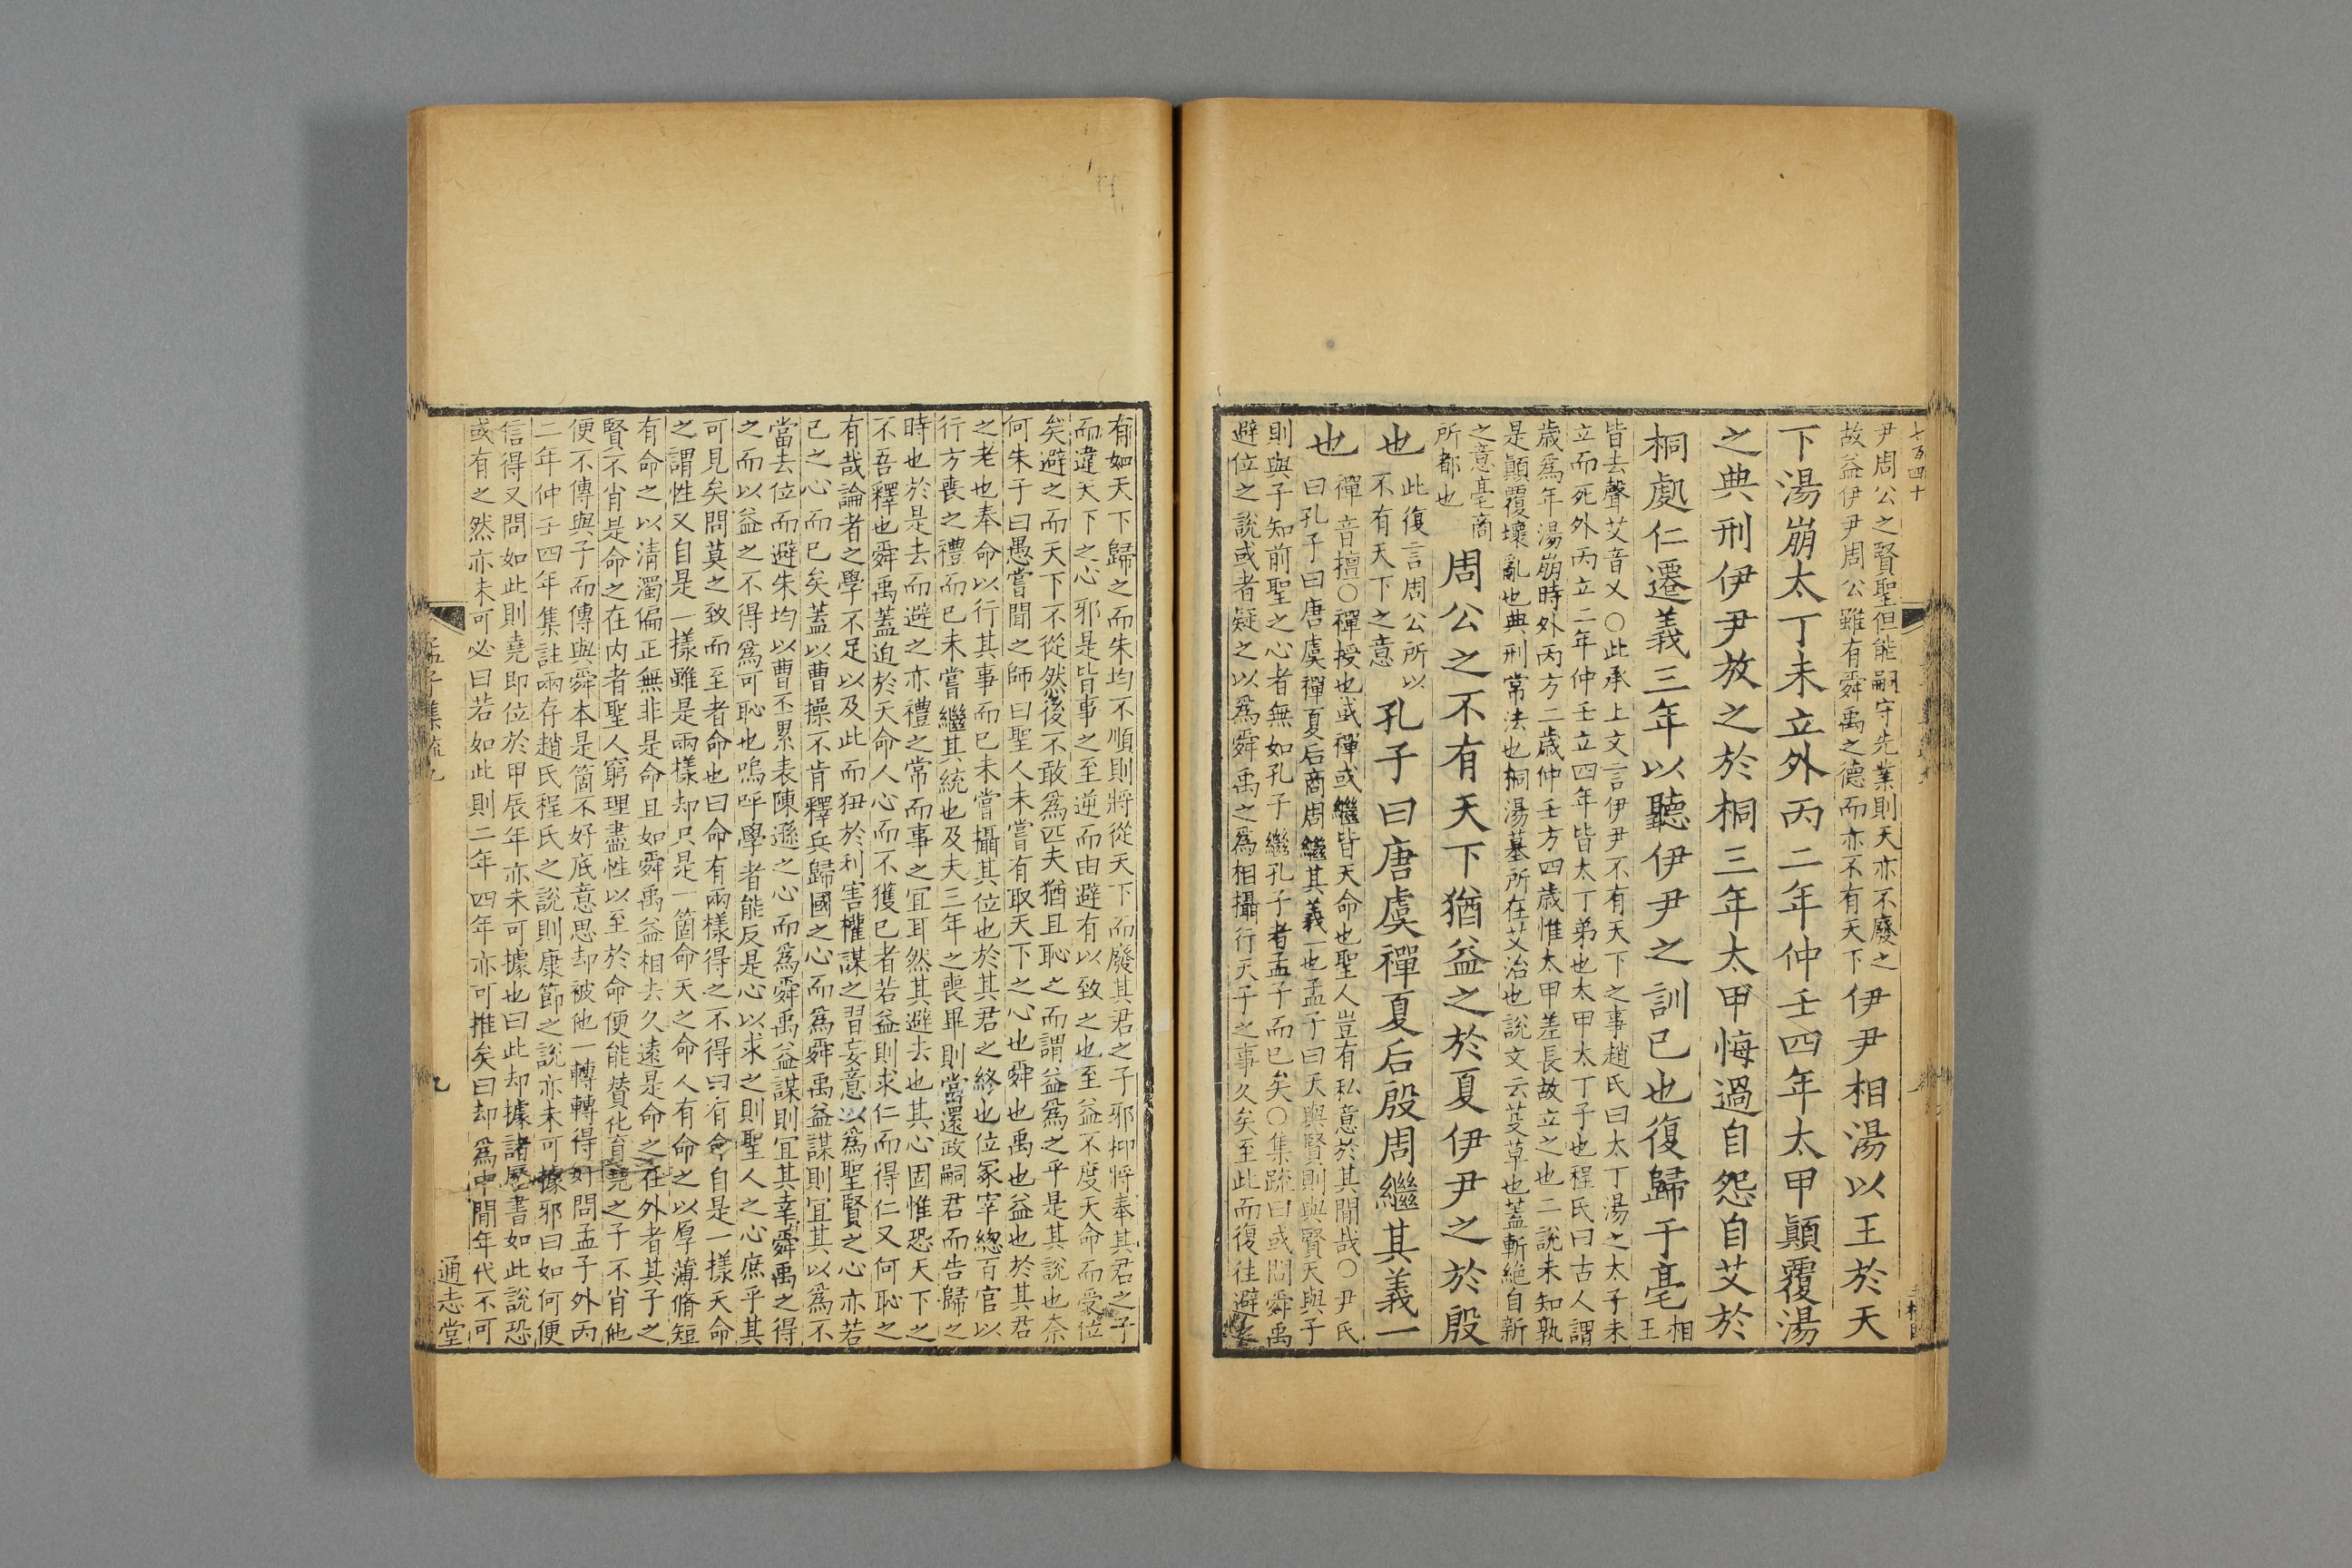 七百四十
尹周公之賢聖但能嗣守先業則天亦不廢之
故益伊尹周公雖有舜禹之德而亦不有天下
伊尹相湯以王於天
下湯崩太丁未立外丙二年仲壬四年太甲顚覆湯
之典刑伊尹放之於桐三年太甲悔過自怨自艾於
桐處仁遷義三年以聽伊尹之訓已也復歸于亳
相王
皆去聲艾音乂○此承上文言伊尹不有天下之事趙氏曰太丁湯之太子未
立而死外丙立二年仲壬立四年皆太丁弟也太甲太丁子也程氏曰古人謂
歲爲年湯崩時外丙方二歲仲壬方四歲惟太甲差長故立之也二說未知孰
是顚覆壞亂也典刑常法也桐湯墓所在艾治也說文云芟草也蓋斬絶自新
之意亳商
所都也
周公之不有天下猶益之於夏伊尹之於殷
也
此復言周公所以
不有天下之意
孔子曰唐虞禪夏后殷周繼其義一
也
禪音擅○禪授也或禪或繼皆天命也聖人豈有私意於其間哉○尹氏
曰孔子曰唐虞禪夏后商周繼其義一也孟子曰天與賢則與賢天與子
則與子知前聖之心者無如孔子繼孔子者孟子而已矣○集疏曰或問舜禹
避位之說或者疑之以爲舜禹之爲相攝行天子之事久矣至此而復往避之
有如天下歸之而朱均不順則將從天下而廢其君之子邪抑將奉其君之子
而違天下之心邪是皆事之至逆而由避有以致之也至益不度天命而受位
矣避之而天下不從然後不敢爲匹夫猶且恥之而謂益爲之乎是其說也奈
何朱子曰愚嘗聞之師曰聖人未嘗有取天下之心也舜也禹也益也於其君
之老也奉命以行其事而已未嘗攝其位也於其君之終也位冢宰緫百官以
行方喪之禮而已未嘗繼其統也及夫三年之喪畢則當還政嗣君而告歸之
時也於是去而避之亦禮之常而事之宜耳然其避去也其心固惟恐天下之
不吾釋也舜禹蓋迫於天命人心而不獲已者若益則求仁而得仁又何恥之
有哉論者之學不足以及此而狃於利害權謀之習妄意以爲聖賢之心亦若
己之心而已矣蓋以曹操不肯釋兵歸國之心而爲舜禹益謀則宜其以爲不
當去位而避朱均以曹丕累表陳遜之心而爲舜禹益謀則宜其幸舜禹之得
之而以益之不得爲可恥也嗚呼學者能反是心以求之則聖人之心庶乎其
可見矣問莫之致而至者命也曰命有兩樣得之不得曰有命自是一樣天命
之謂性又自是一樣雖是兩樣却只是一箇命天之命人有命之以厚薄脩短
有命之以淸濁偏正無非是命且如舜禹益相去久遠是命之在外者其子之
賢不肖是命之在内者聖人窮理盡性以至於命便能贊化育堯之子不肖他
便不傳與子而傳與舜本是箇不好底意思却被他一轉轉得好問孟子外丙
二年仲壬四年集註兩存趙氏程氏之說則康節之說亦未可據邪曰如何便
信得又問如此則堯即位於甲辰年亦未可據也曰此却據諸歷書如此說恐
或有之然亦未可必曰若如此則二年四年亦可推矣曰却爲中間年代不可
孟子集疏九
九
通志堂